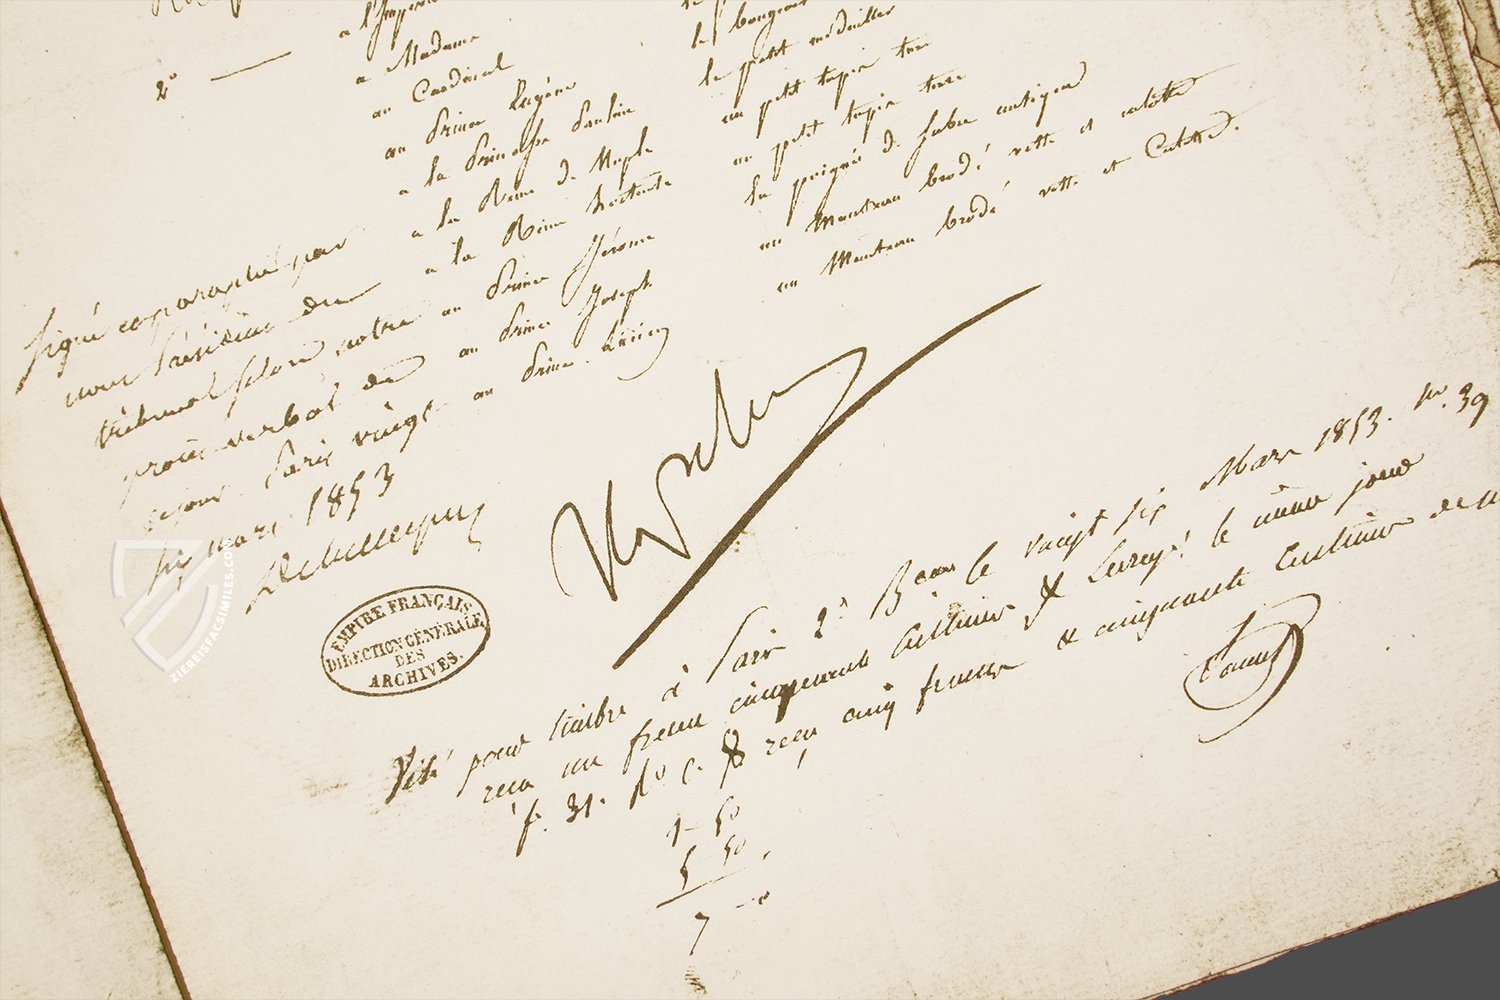 a l'Impera
2° — a Madame le bougeoir
au Cardinal le petit médailler
au Prince Eugène un petit tapis turc
a la Princesse Pauline un petit tapis turc
a la Reine de Naple la poignée de sabre antique
a la Reine hortense un Manteau brodé veste et culotte
au Prince Jérome un Manteau brodé veste et Culotte.
au Prince Joseph
au Prince Lucien
Signé et paraphé par
nous Président du
tribunal selon notre
procès-verbal de
ce jour. Paris vingt
six mars 1853
Debelleyme
Napoleon
EMPIRE FRANÇAIS
DIRECTION GÉNÉRALE
DES
ARCHIVES.
Visé pour timbre à Paris 2e Bau le vingt six Mars 1853. Nº 39
reçu un franc cinquante centimes & Enregé le même jour
f. 31. Rº C. 8 reçu cinq francs & cinquante centimes
1 - 50
5 50
7 - 0
ZIEREISFACSIMILES.COM